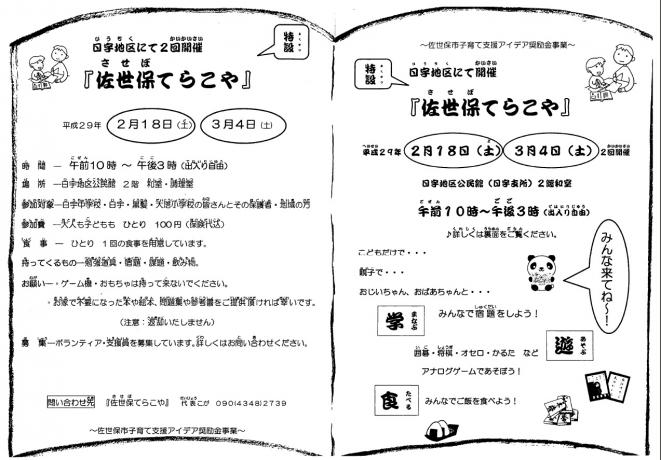 特設
日宇地区にて2回開催
『佐世保てらこや』
平成29年 2月18日(土) 3月4日(土)
時 間 ― 午前10時 ～ 午後3時(出入り自由)
場 所 ―日宇地区公民館 2階 和室・調理室
参加対象―日宇中学校・日宇・黒髪・大塔小学校の皆さんとその保護者・地域の方
参加費 ―大人も子どもも ひとり 100円(保険代込)
食 事 ― ひとり 1回の食事を用意しています。
持ってくるもの―勉強道具・宿題・課題・飲み物。
お願い―・ゲーム機・おもちゃは持って来ないでください。
・お家で不要になった本や絵本、問題集や参考書をご提供頂ければ幸いです。
(注意:返却いたしません)
募 集―ボランティア・支援員を募集しています。詳しくはお問い合わせください。
問い合わせ先 『佐世保てらこや』 代表こが 090(4348)2739
～佐世保市子育て支援アイデア奨励金事業～
～佐世保市子育て支援アイデア奨励金事業～
特設
日宇地区にて開催
『佐世保てらこや』
平成29年 2月18日(土) 3月4日(土) 2回開催
日宇地区公民館(日宇支所)2階和室
午前10時～午後3時(出入り自由)
♪詳しくは裏面をご覧ください。
こどもだけで・・・
親子で・・・
おじいちゃん、おばあちゃんと・・・
みんな来てね～!
学 まなぶ
みんなで宿題をしよう!
遊 あそぶ
囲碁・将棋・オセロ・かるた など
アナログゲームであそぼう!
食 たべる
みんなでご飯を食べよう!